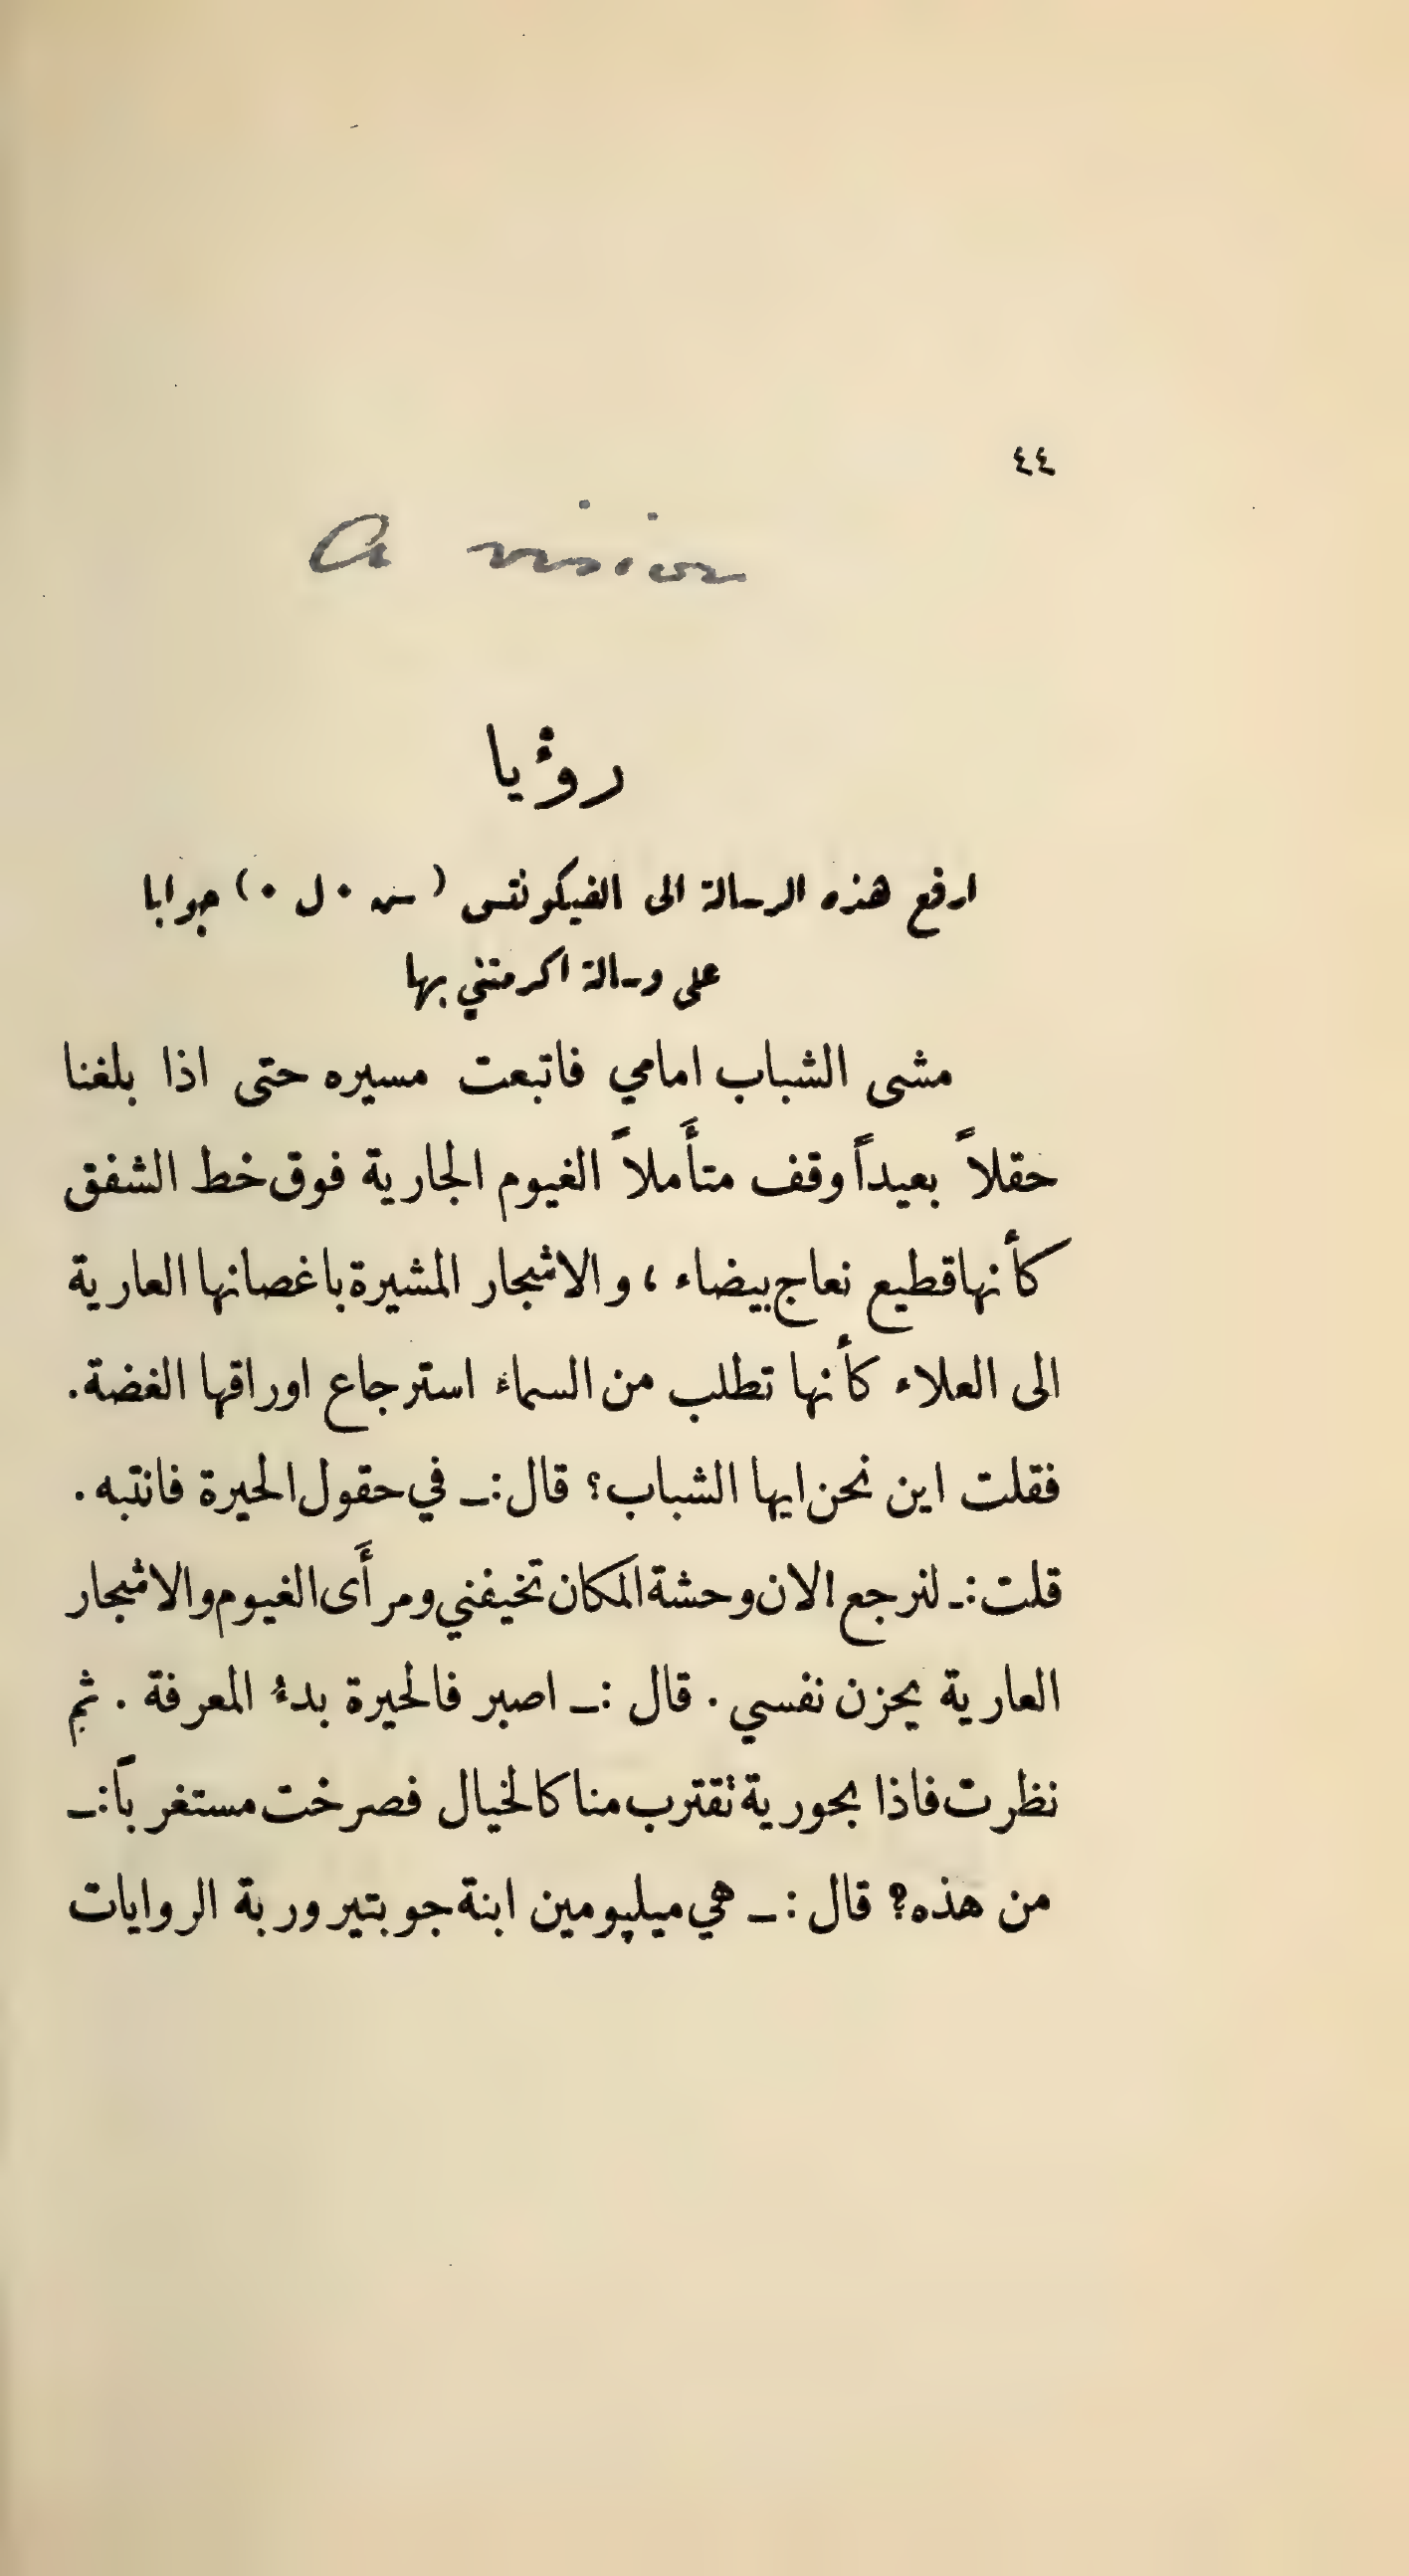 ٤٤
A vision
رؤْيا
ارفع هذه الرسالة الى الفيكونتس ( س ٠ ل ٠ ) جوابا
على رسالة اكرمتني بها
مشى الشباب امامي فاتبعت مسيره حتى اذا بلغنا
حقلاً بعيداً وقف متأَملاً الغيوم الجارية فوق خط الشفق
كأنها قطيع نعاج بيضاء ، والاشجار المشيرة باغصانها العارية
الى العلاء كأنها تطلب من السماءِ استرجاع اوراقها الغضة .
فقلت اين نحن ايها الشباب؟ قال :ـ في حقول الحيرة فانتبه .
قلت :ـ لنرجع الان وحشة المكان تخيفني ومرأَى الغيوم والاشجار
العارية يحزن نفسي . قال :ـ اصبر فالحيرة بدءُ المعرفة . ثم
نظرت فاذا بحورية تقترب منا كالخيال فصرخت مستغرباً :ـ
من هذه؟ قال :ـ هي ميلپومين ابنة جوبتير وربة الروايات